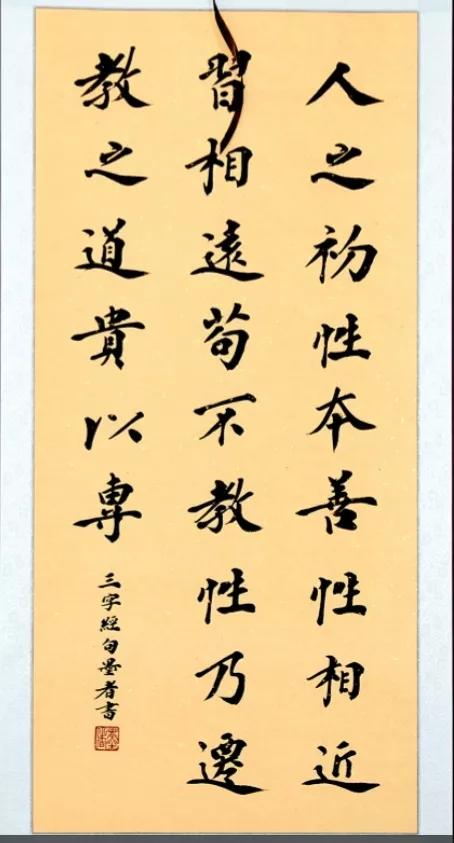 人之初性本善性相近
習相遠苟不教性乃遷
教之道貴以專
三字經句墨者書